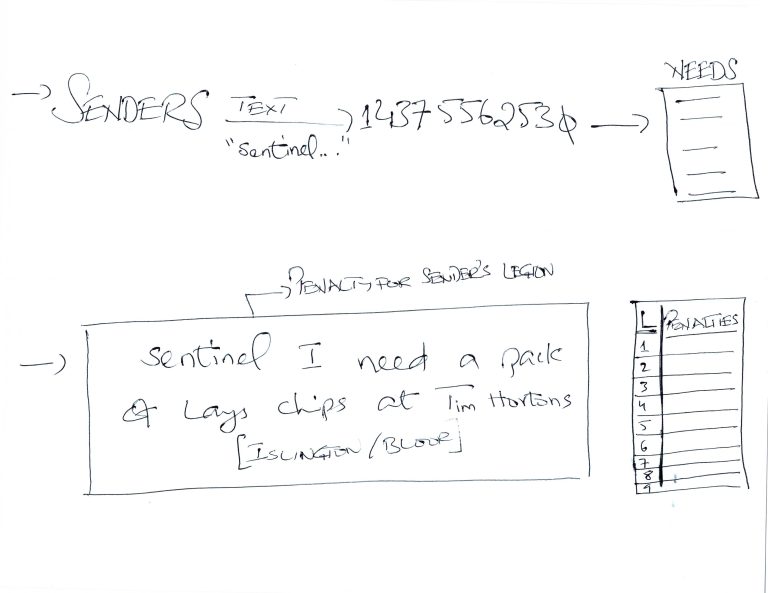 NEEDS
→ SENDERS TEXT 14375562530 →
"sentinel..."
→ PENALTY FOR SENDER'S LEGION
→ sentinel I need a pack
of Lays chips at Tim Hortons
[ISLINGTON/BLOOR]
L PENALTIES
1
2
3
4
5
6
7
8
9